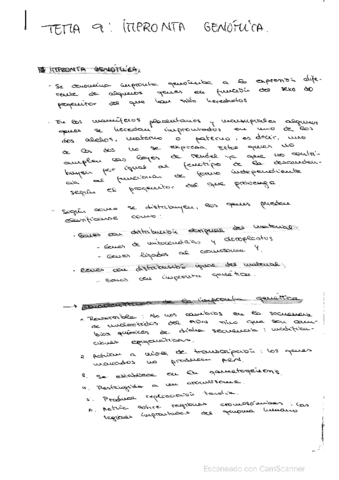 TEMA 9: IMPRONTA GENÓMICA.
IMPRONTA GENÓMICA.
- Se denomina impronta genómica a la expresión dife-
rente de algunos genes en función del sexo del
progenitor del que han sido heredados
- En los mamíferos placentarios y marsupiales algunos
genes se heredan improntados en uno de los
dos alelos, materno o paterno, es decir, uno
de los dos no se expresa. Estos genes no
cumplen las leyes de Mendel ya que no contri-
buyen por igual al fenotipo de la descenden-
cia al funcionar de forma independiente
según el progenitor del que provenga
- Según como se distribuyen, los genes pueden
clasificarse como:
- Genes con distribución desigual del material:
- Genes de mitocondrias y cloroplastos
- Genes ligados al cromosoma Y.
- Genes con distribución igual del material
- Genes con impronta genética.
→ Características de la impronta genética
1. Reversible: No hay cambios en la secuencia
de nucleótidos del ADN sino que son cam-
bios químicos de dicha secuencia: modifica-
ciones epigenéticas.
2. Actúan a nivel de transcripción: los genes
marcados no producen ARN.
3. Se establece en la gametogénesis
4. Restringida a un cromosoma.
5. Produce replicación tardía.
6. Actúa sobre regiones cromosómicas: las
regiones improntadas del genoma humano
Escaneado con CamScanner